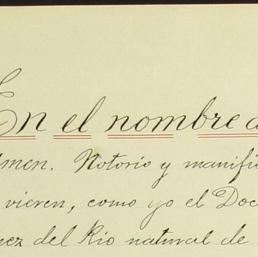 En el nombre d
men. Notorio y manifi
vieren, como yo el Doc
nez del Rio natural de